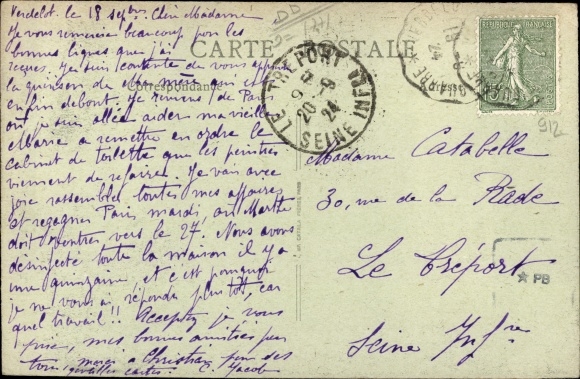 Verdelot. le 18 septbre. Chère Madame
Je vous remercie beaucoup pour les
bonnes lignes que j'ai
reçues. Je suis contente de vous apprendre
la guérison de
enfin debout. Je reviens de Paris
où je suis allée aider ma vieille
Marie a remettre en ordre le
cabinet de toilette que les peintres
viennent de refaire. Je vais avec
joie rassembler toutes mes affaires
et regagner Paris mardi, où Marthe
doit rentrer vers le 27. Nous avons
désinfecté toute la maison il y a
une quinzaine, et c'est pourquoi
je ne vous ai répondu plus tôt, car
quel travail!! Acceptez je vous
prie, mes bonnes amitiés pour
tous, merci a Christian pour ses
gentilles cartes. C. Jacob
CARTE POSTALE
Correspondance
Adresse
LE TRÉPORT
SEINE INFRE
20 - 9
24
SEINE
RÉPUBLIQUE FRANÇAISE
912
Madame Catabelle
30, rue de la Rade
Le Tréport
Seine Infre
★ PB